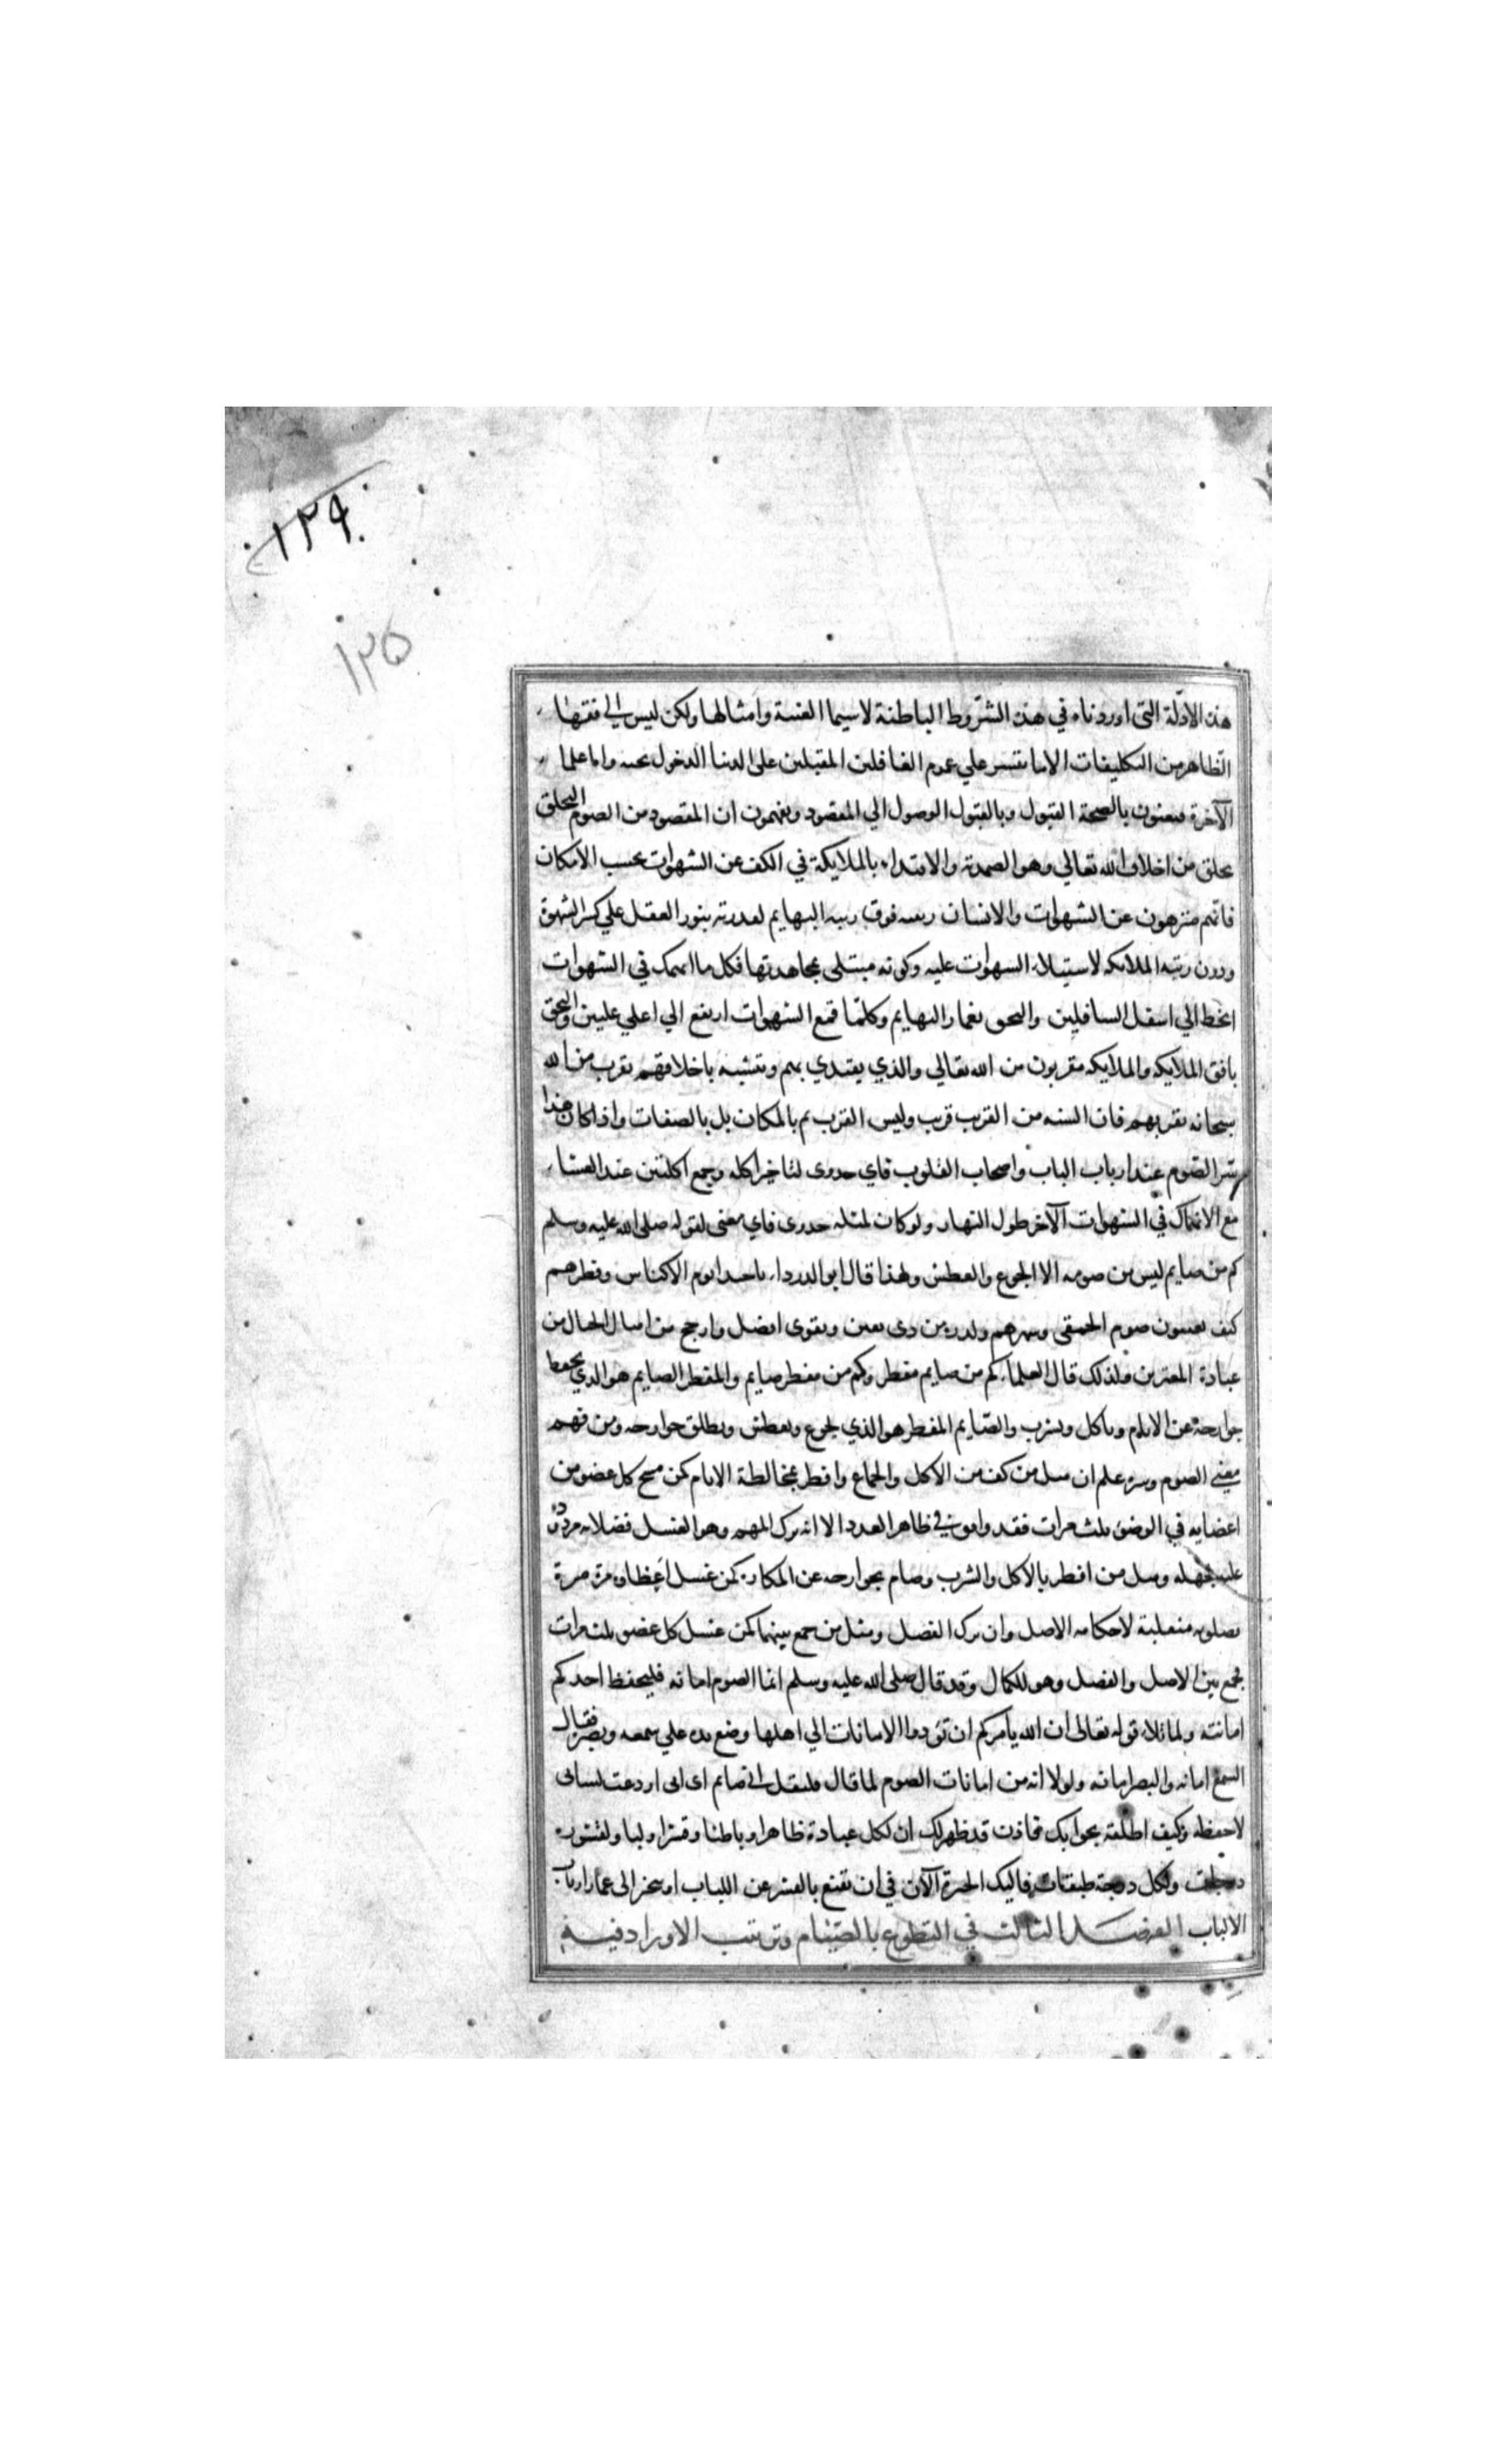 ١٢٩
١٢٥
هذه الادلة التى اوردناه في هذه الشروط الباطنة لاسيما الغيبة وامثالها ولكن ليس الى فقهاء
الظاهر من التكليفات الا ما يتيسر علي عموم الغافلين المقبلين على الدنيا الدخول تحته واما علماء
الآخرة فيعنون بالصحة القبول وبالقبول الوصول الي المقصود ويفهمون ان المقصود من الصوم التخلق
بخلق من اخلاق الله تعالي وهو الصمدية والاقتداء بالملايكة في الكف عن الشهوات بحسب الامكان
فانهم منزهون عن الشهوات والانسان رتبته فوق رتبة البهايم لقدرته بنور العقل علي كسر الشهوة
ودون رتبة الملايكه لاستيلاء الشهوات عليه وكونه مبتلى بمجاهدتها فكل ما انهمك في الشهوات
انحط الي اسفل السافلين والتحق بغمار البهايم وكلما قمع الشهوات ارتفع الي اعلي عليين والتحق
بافق الملايكه والملايكه مقربون من الله تعالي والذي يقتدي بهم ويتشبه باخلاقهم يقرب من الله
سبحانه بقربهم فان الشبه من القرب قرب وليس القرب ثم بالمكان بل بالصفات واذا كان هذا
سر الصوم عند ارباب الباب واصحاب القلوب فاي جدوى لتاخير اكله وجمع اكلتين عند العشاء
مع الانهماك في الشهوات الآخر طول النهار ولو كان لمثله جدوى فاي معنى لقوله صلى الله عليه وسلم
كم من صايم ليس من صومه الا الجوع والعطش ولهذا قال ابو الدرداء ياحبذا نوم الاكياس وفطرهم
كيف يعيبون صوم الحمقى وسهرهم ولذرة من ذى يقين وتقوى افضل وارجح من امثال الجبال من
عبادة المغترين ولذلك قال العلماء كم من صايم مفطر وكم من مفطر صايم والمفطر الصايم هو الذي يحفظ
جوارحه عن الاثام وياكل ويشرب والصايم المفطر هو الذي يجوع ويعطش ويطلق جوارحه ومن فهم
معنى الصوم وسره علم ان مثل من كف من الاكل والجماع وافطر بمخالطة الاثام كمن مسح كل عضو من
اعضايه في الوضوء ثلث مرات فقد وافق في ظاهر العدد الا انه ترك المهم وهو الغسل فصلاته مردودة
عليه بجهله ومثل من افطر بالاكل والشرب وصام بجوارحه عن المكاره كمن غسل اعظاه مرة مرة
فصلوته متقبلة لاحكامه الاصل وان ترك الفضل ومثل من جمع بينهما كمن غسل كل عضو ثلث مرات
فجمع بين الاصل والفضل وهو للكمال وقد قال صلى الله عليه وسلم انما الصوم امانه فليحفظ احدكم
امانته ولما تلا قوله تعالى ان الله يامركم ان تؤدوا الامانات الي اهلها وضع يده علي سمعه وبصره فقال
السمع امانه والبصر امانه ولولا انه من امانات الصوم لما قال فليقل انى صايم اى انى اودعت لسانى
لاحفظه وكيف اطلقه بجوابك فاذن قد ظهر لك ان لكل عبادة ظاهرا وباطنا وقشرا ولبا ولقشوره
درجات ولكل درجة طبقات فاليك الخيرة الآن في ان تقنع بالقشر عن اللباب او تتحيز الى غمار ارباب
الالباب الفصل الثالث في التطوع بالصيام وترتيب الاوراد فيه